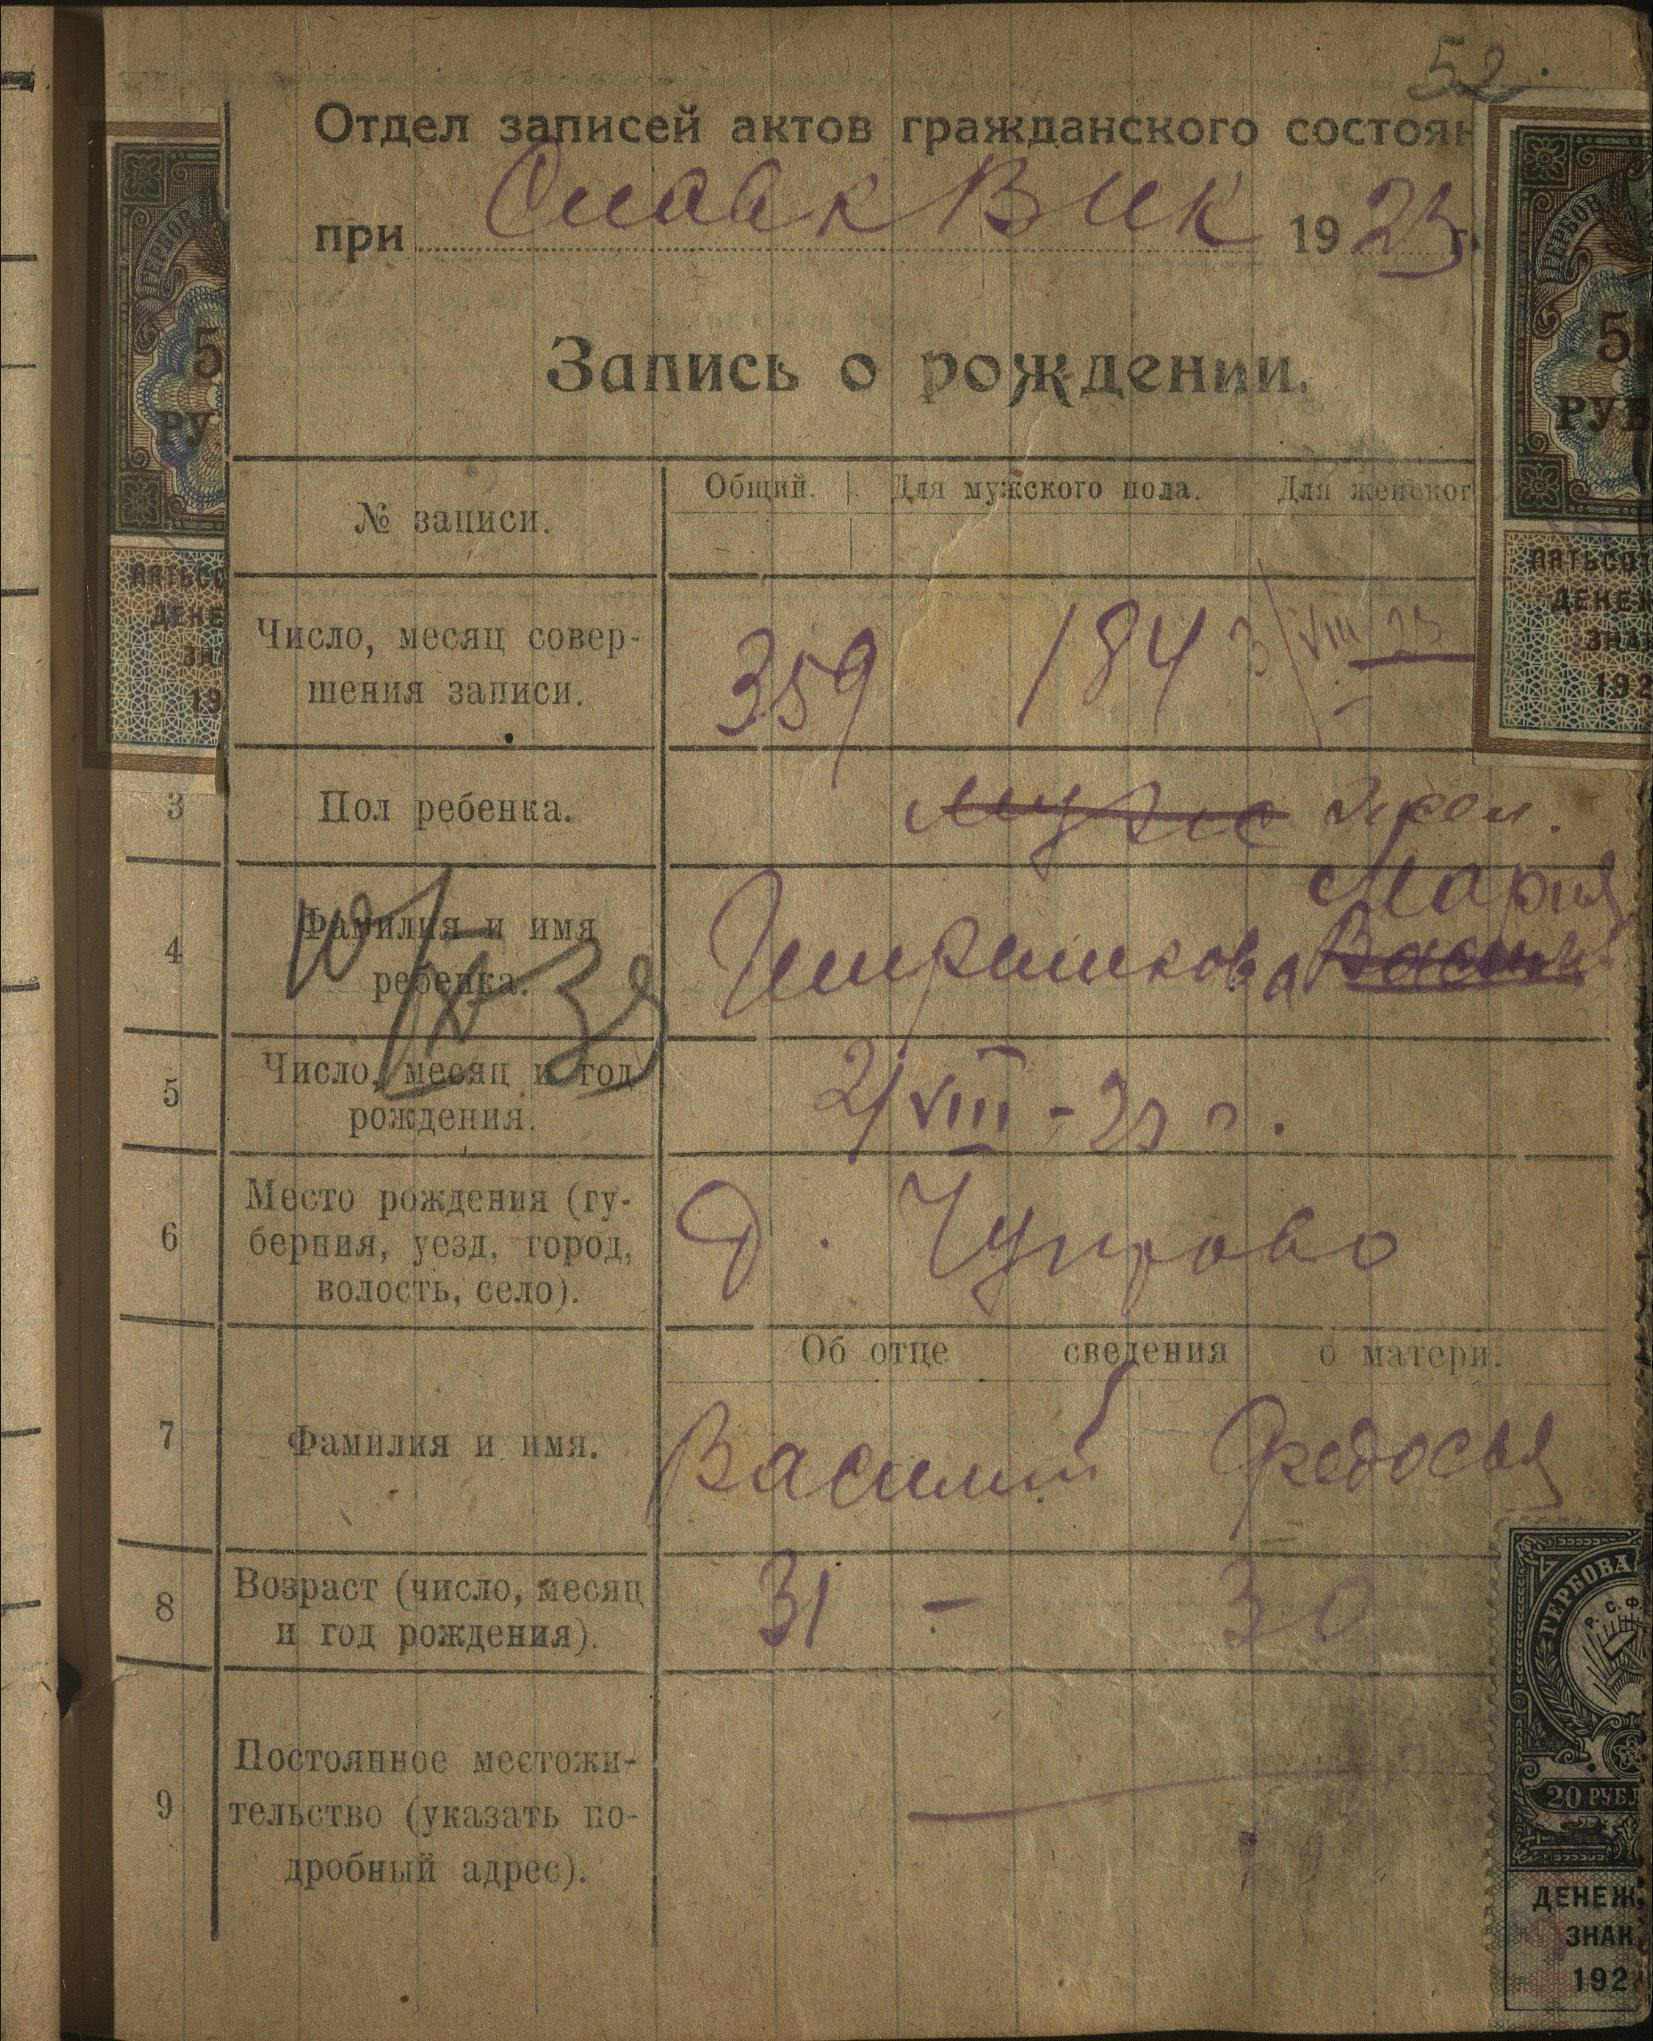 52.
Отдел записей актов гражданского состоян
при Спасск ВИК 1923 г.
Запись о рождении.
№ записи.
Общий. Для мужского пола. Для женског
Число, месяц совер-
шения записи.
359 184 3/VIII 23
3 Пол ребенка. муж жен.
4 Фамилия и имя
ребенка.
Мария
5 Число, месяц и год
рождения.
2/VIII - 23 г.
6 Место рождения (гу-
берния, уезд, город,
волость, село).
Д. Чупрово
Об отце сведения о матери.
7 Фамилия и имя. Василий Федосья
8 Возраст (число, месяц
и год рождения).
31 - 30
9 Постоянное местожи-
тельство (указать по-
дробный адрес).
5
РУ
ПЯТЬСО
ДЕНЕ
ЗН
19
5
РУБ
ПЯТЬСОТ
ДЕНЕЖ
ЗНАК
192
ГЕРБОВА
Р. С. Ф.
20 РУБЛ
ДЕНЕЖ.
ЗНАК.
192